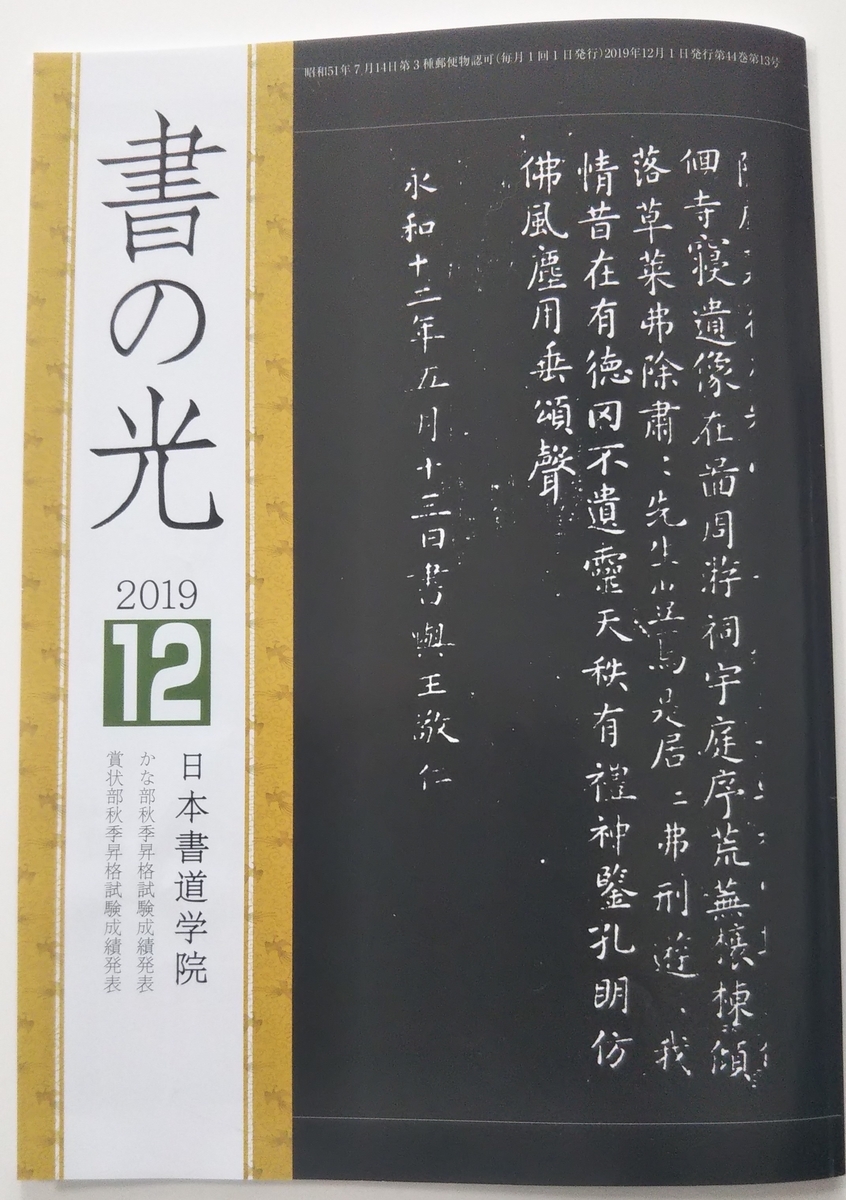 昭和51年7月14日第3種郵便物認可(毎月1回1日発行)2019年12月1日発行第44巻第13号
佪寺寢遺像在啚周斿祠宇庭序荒蕪榱棟傾
落草莱弗除肅〻先生豈焉是居〻弗刑遊〻我
情昔在有德罔不遺靈天秩有禮神鑒孔明仿
佛風塵用垂頌聲
永和十二年五月十三日書與王敬仁
書の光
2019
12
日本書道学院
かな部秋季昇格試験成績発表
賞状部秋季昇格試験成績発表